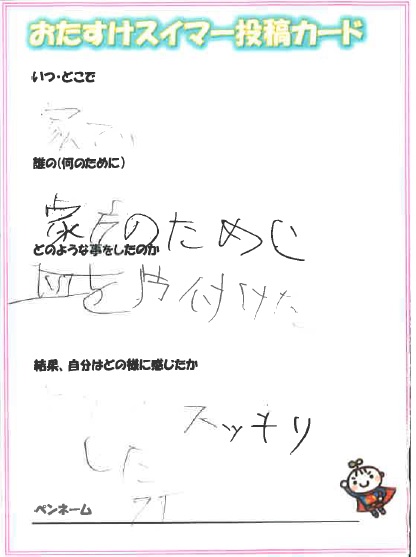 おたすけスイマー投稿カード
いつ・どこで
家で
誰の(何のために)
家族のために
どのような事をしたのか
皿を片付けた
結果、自分はどの様に感じたか
スッキリ
した
ペンネーム